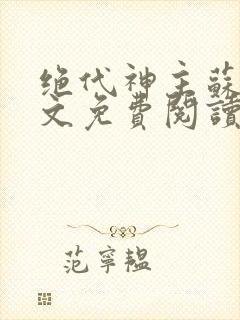 绝代神主蘇
文免費閱讀
范寧韞